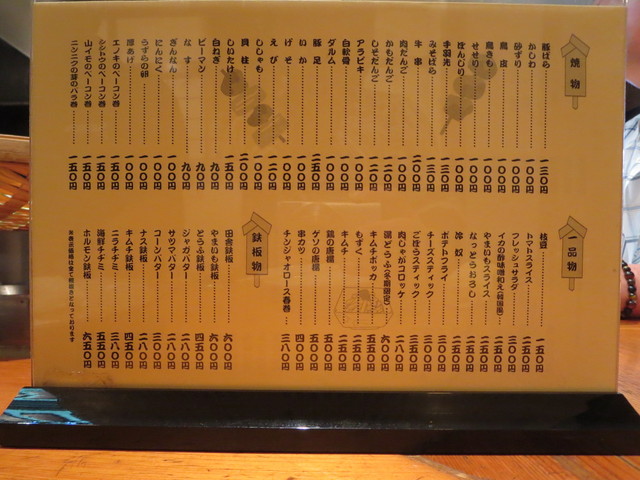 焼物
豚ばら 一三〇円
かしわ 一〇〇円
砂ずり 一〇〇円
鳥皮 一〇〇円
鳥きも 一〇〇円
せせり 一〇〇円
ぼんじり 一〇〇円
手羽先 一三〇円
みそばら 一三〇円
牛串 二〇〇円
肉だんご 一〇〇円
かもだんご 一二〇円
しそだんご 一二〇円
アラビキ 一〇〇円
白軟骨 一〇〇円
ダルム 一〇〇円
豚足 二五〇円
いか 一〇〇円
げそ 一〇〇円
えび 一二〇円
ししゃも 一〇〇円
貝柱 二〇〇円
しいたけ 一五〇円
白ねぎ 九〇円
ピーマン 九〇円
なす 九〇円
ぎんなん 一〇〇円
にんにく 一〇〇円
うずらの卵 一〇〇円
厚あげ 一〇〇円
エノキのベーコン巻 一五〇円
シシトウのベーコン巻 一五〇円
山イモのベーコン巻 一五〇円
ニンニクの芽のバラ巻 一五〇円
一品物
枝豆 一五〇円
トマトスライス 二五〇円
フレッシュサラダ 三〇〇円
イカの酢味噌和え(韓国風) 二五〇円
やまいもスライス 二五〇円
なっとうおろし 二五〇円
冷奴 二五〇円
ポテトフライ 三〇〇円
チーズスティック 三五〇円
ごぼうスティック 三五〇円
肉じゃがコロッケ 二八〇円
鍋どうふ(冬期限定) 六〇〇円
キムチポッカ 五五〇円
もずく 二五〇円
キムチ 二五〇円
鶏の唐揚 五五〇円
ゲソの唐揚 五五〇円
串カツ 四〇〇円
チンジャオロース春巻 三八〇円
鉄板物
田舎鉄板 六〇〇円
やまいも鉄板 六〇〇円
とうふ鉄板 四五〇円
ジャガバター 二八〇円
サツマバター 二八〇円
コーンバター 三〇〇円
ナス鉄板 二八〇円
キムチ鉄板 四五〇円
ニラチヂミ 三八〇円
海鮮チヂミ 五五〇円
ホルモン鉄板 六五〇円
※表示価格は全て税抜きとなっております